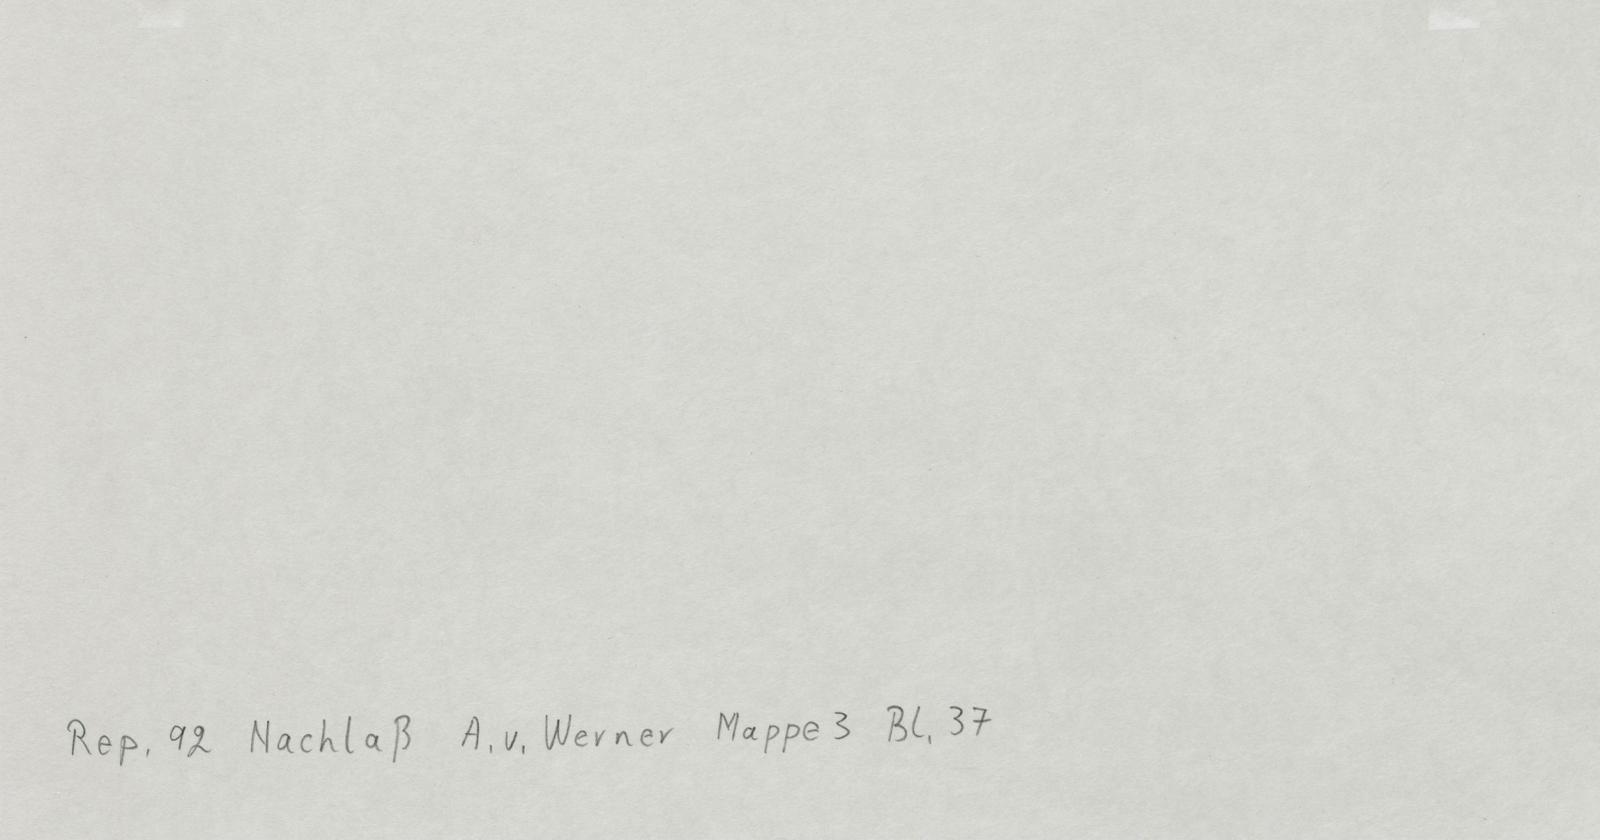 Rep. 92 Nachlaß A. v. Werner Mappe 3 Bl. 37